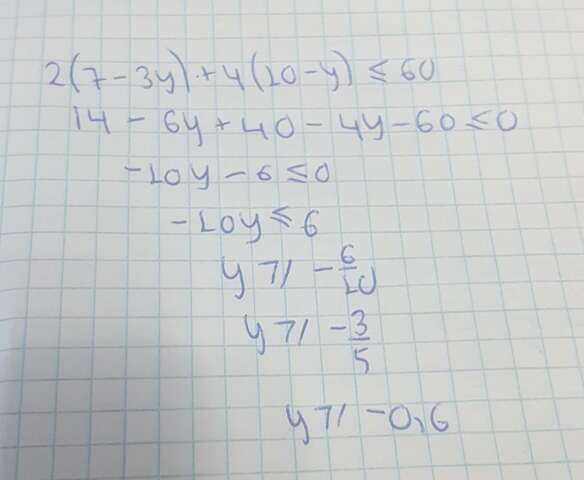 2(7-3y)+4(10-y)≤60
14-6y+40-4y-60≤0
-10y-6≤0
-10y≤6
y≥-6/10
y≥-3/5
y≥-0,6